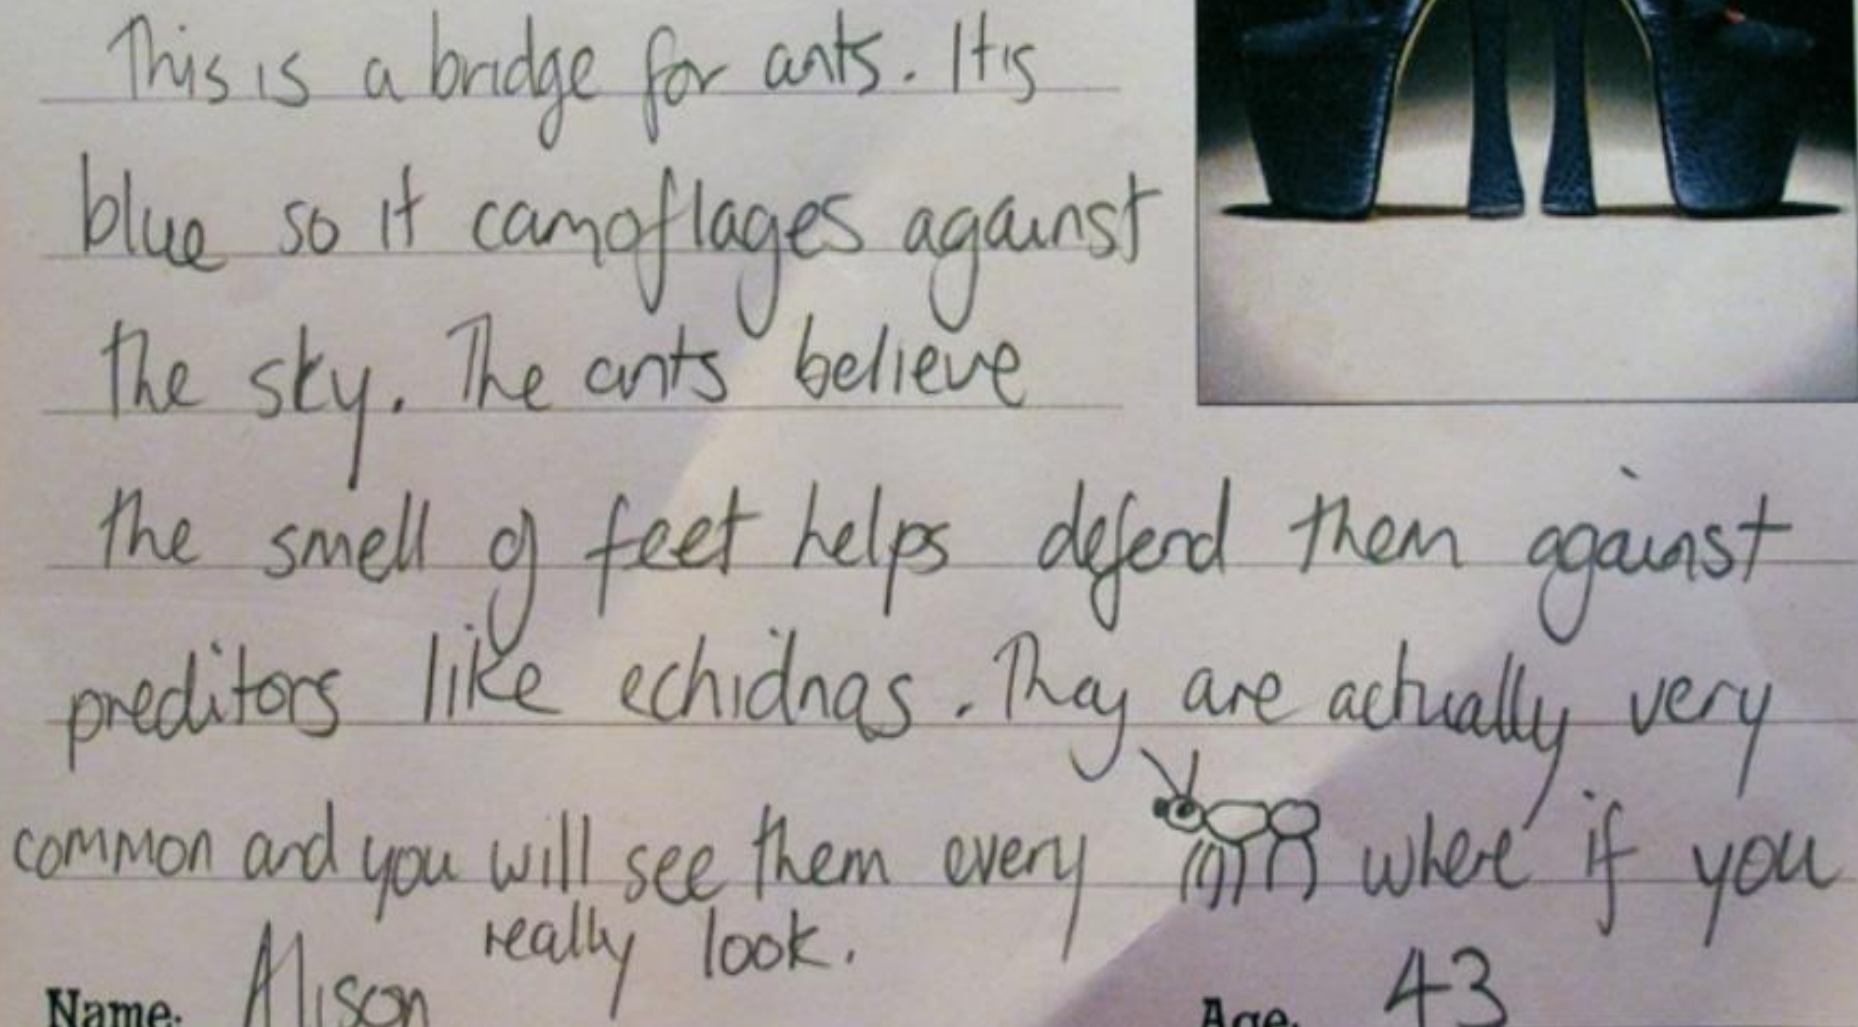 This is a bridge for ants. It is
blue so it camoflages against
the sky. The ants believe
the smell of feet helps defend them against
preditors like echidnas. They are actually very
common and you will see them every where if you
really look.
Name: Alison
Age: 43